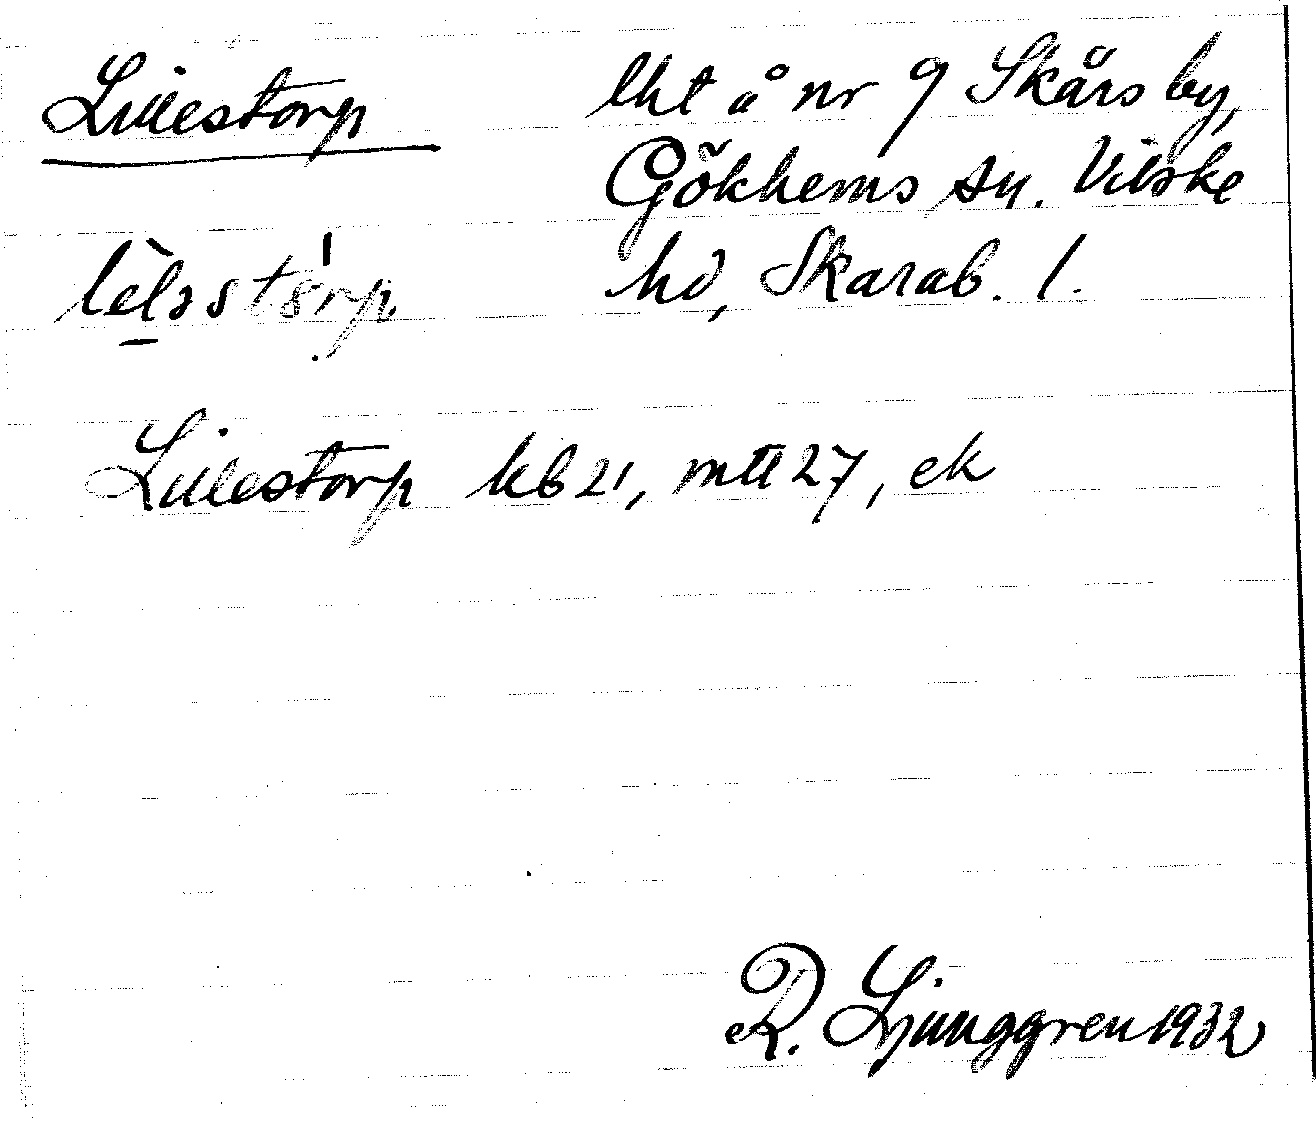 Lillestorp
lht å nr 9 Skårs by,
Gökhems sn. Vilske
hd, Skarab. l.
Lillestorp kb 21, mtl 27, ek
R. Ljunggren 1932